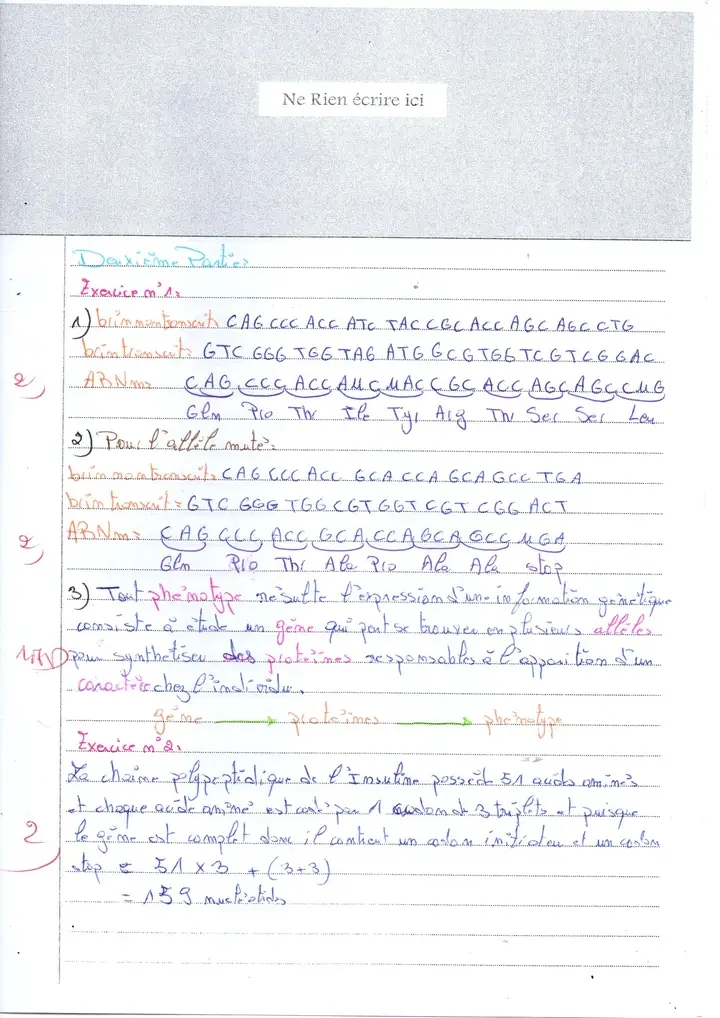 Ne Rien écrire ici
Deuxième Partie:
Exercice n°1:
1) brin non transcrit: CAG CCC ACC ATC TAC CGC ACC AGC AGC CTG
brin transcrit: GTC GGG TGG TAG ATG GCG TGG TCG TCG GAC
2
ARNm: CAG CCC ACC AUC UAC CGC ACC AGC AGC CUG
Gln Pro Thr Ile Tyr Arg Thr Ser Ser Leu
2) Pour l'allèle muté:
brin non transcrit: CAG CCC ACC GCA CCA GCA GCC TGA
brin transcrit: GTC GGG TGG CGT GGT CGT CGG ACT
2
ARNm: CAG CCC ACC GCA CCA GCA GCC UGA
Gln Pro Thr Ala Pro Ala Ala stop
3) Tout phénotype résulte l'expression d'une information génétique
consiste à étude un gène qui peut se trouver en plusieurs allèles
pour synthetiser des protéines responsables à l'apparition d'un
caractère chez l'individu.
gène → protéines → phénotype
Exercice n°2:
La chaine polypeptidique de l'Insuline possède 51 acides aminés
et chaque acide aminé est codé par 1 codon de 3 triplets et puisque
2
le gène est complet donc il contient un codon initiateu et un codon
stop = 51 x 3 + (3+3)
= 159 nucléotides